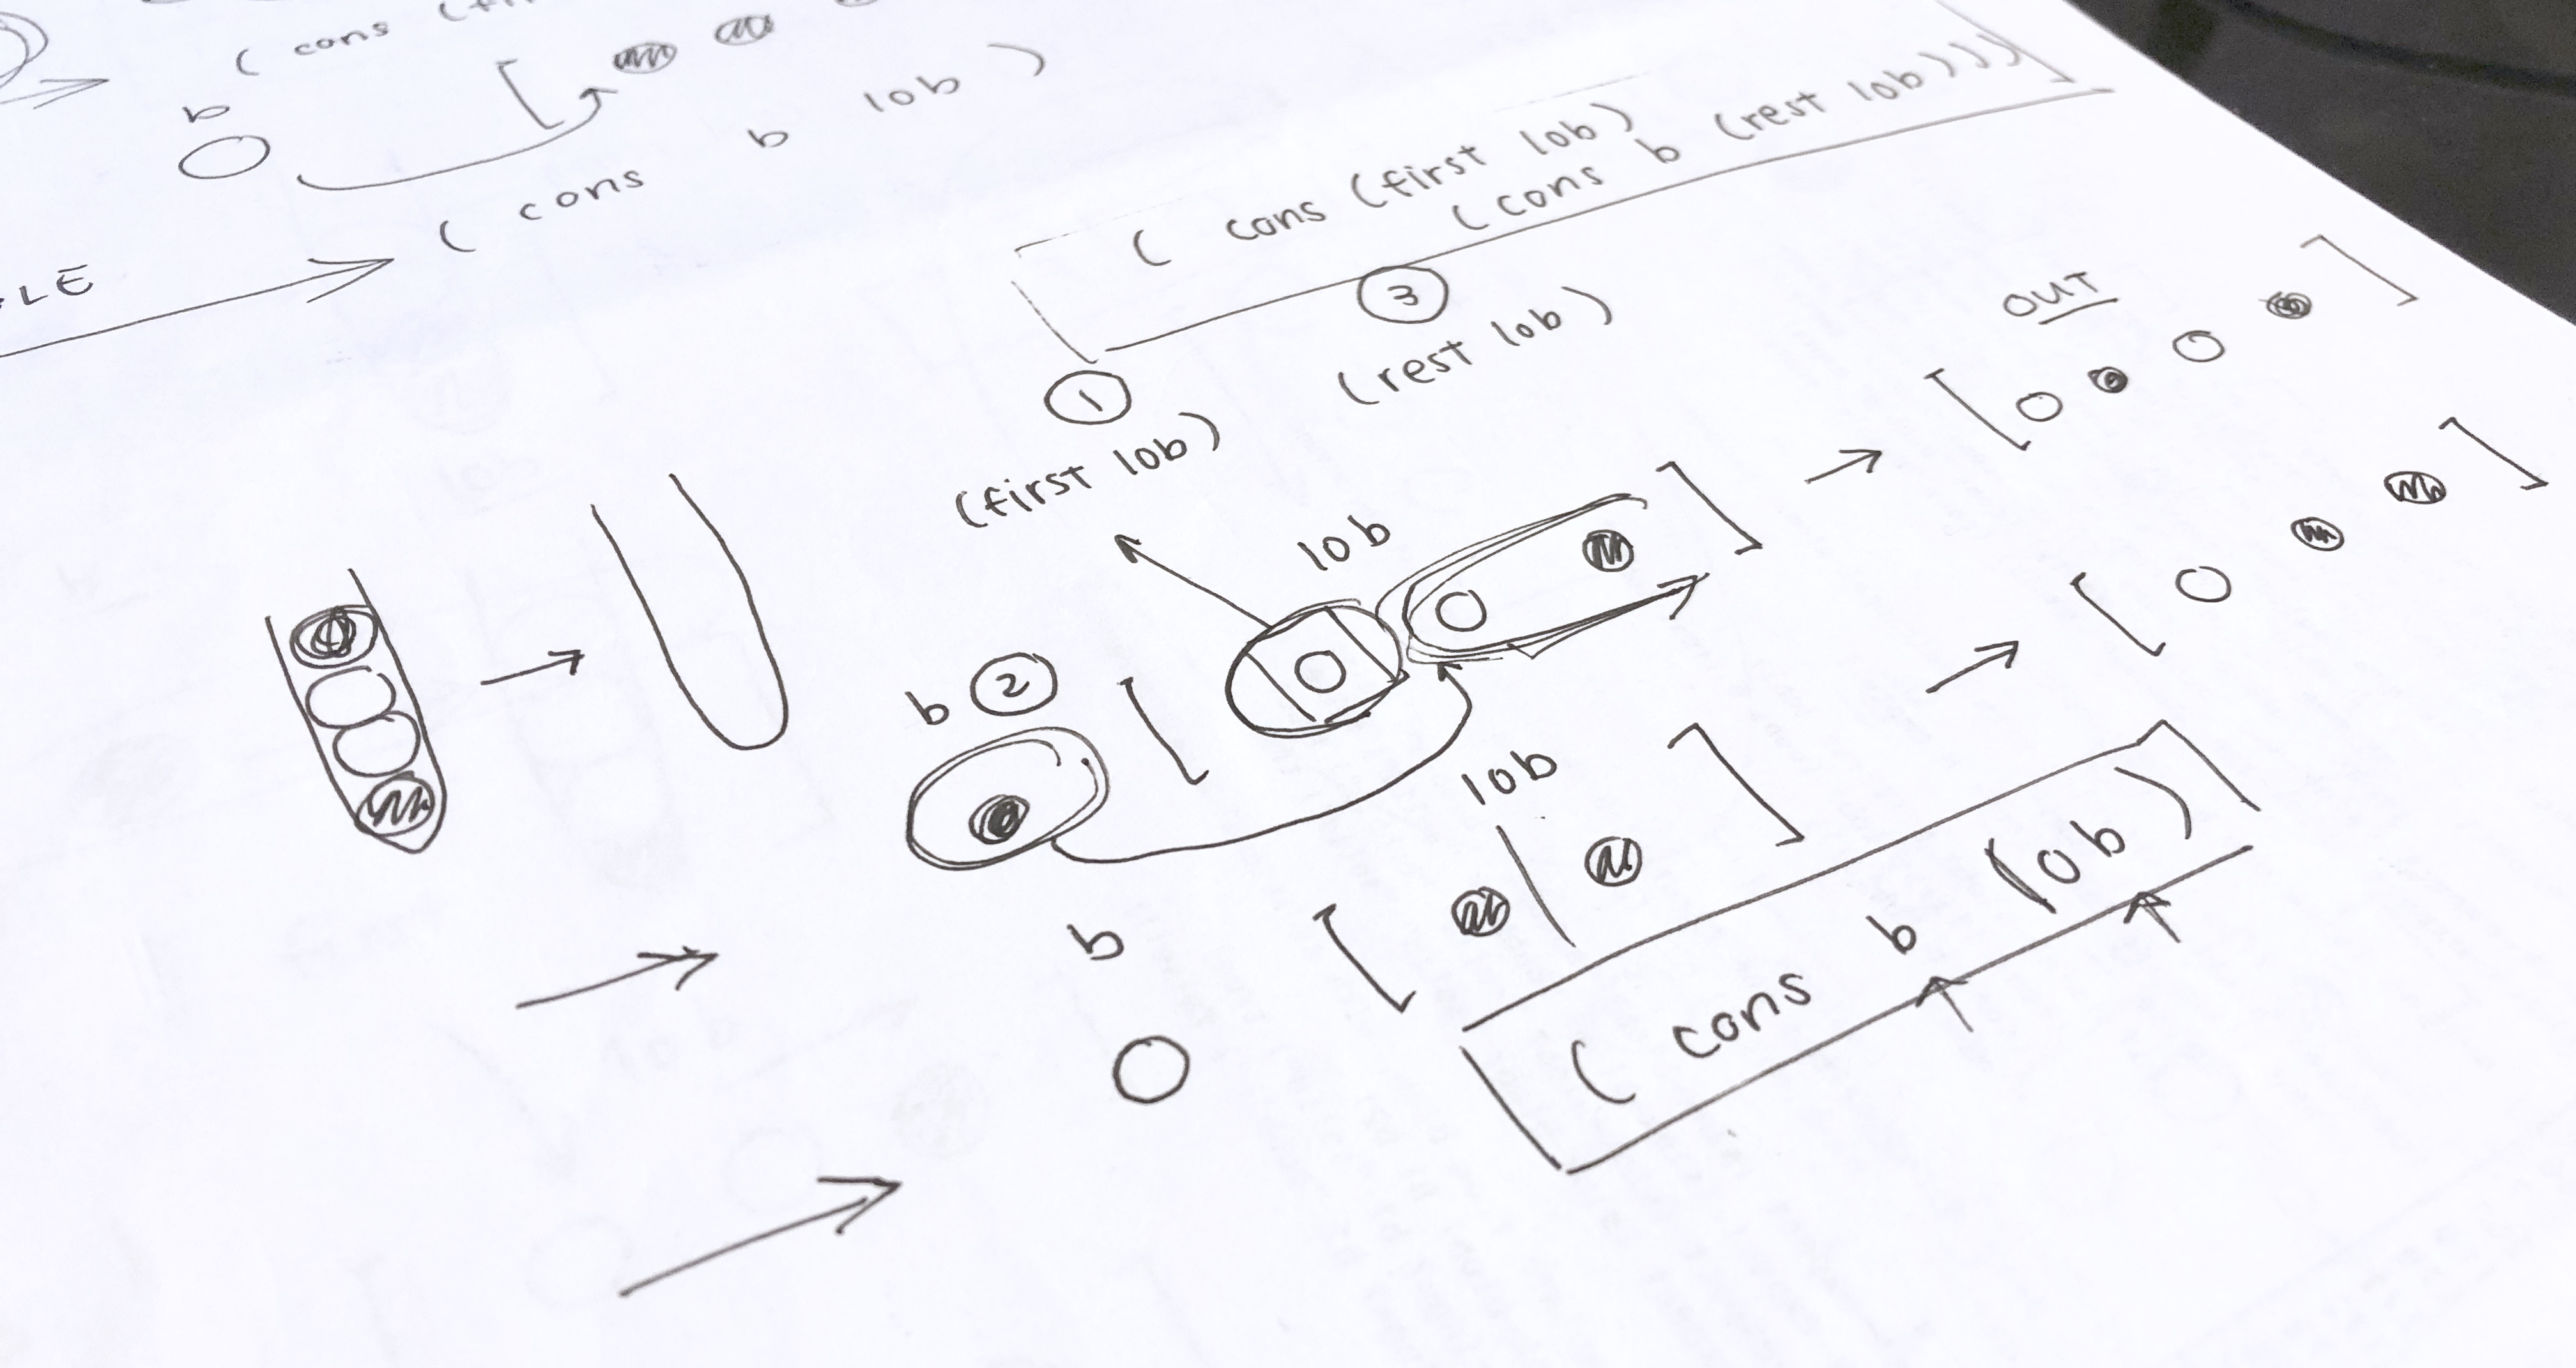 ( cons (fi
b
( cons b lob )
LE
( cons (first lob)
(cons b (rest lob))))
3
(rest lob)
1
(first lob)
OUT
lob
b 2
lob
b
( cons b lob )